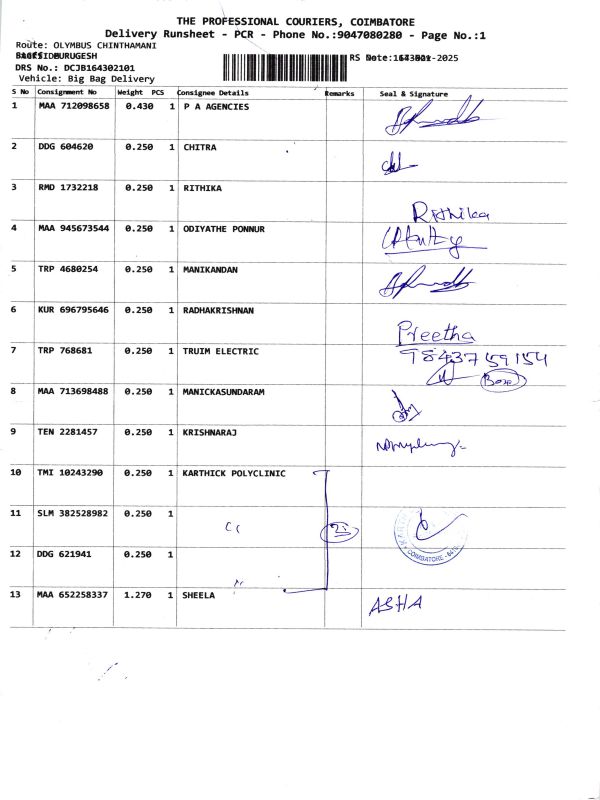 THE PROFESSIONAL COURIERS, COIMBATORE
Delivery Runsheet - PCR - Phone No.:9047080280 - Page No.:1
Route: OLYMBUS CHINTHAMANI
DRS No.: DCJB164302101
Vehicle: Big Bag Delivery
S No Consignment No Weight PCS Consignee Details Remarks Seal & Signature
1 MAA 712098658 0.430 1 P A AGENCIES
2 DDG 604620 0.250 1 CHITRA
3 RMD 1732218 0.250 1 RITHIKA
Rithika
4 MAA 945673544 0.250 1 ODIYATHE PONNUR
5 TRP 4680254 0.250 1 MANIKANDAN
6 KUR 696795646 0.250 1 RADHAKRISHNAN
Preetha
7 TRP 768681 0.250 1 TRUIM ELECTRIC
9843759154
8 MAA 713698488 0.250 1 MANICKASUNDARAM
9 TEN 2281457 0.250 1 KRISHNARAJ
10 TMI 10243290 0.250 1 KARTHICK POLYCLINIC
11 SLM 382528982 0.250 1
12 DDG 621941 0.250 1
COIMBATORE
13 MAA 652258337 1.270 1 SHEELA
ASHA